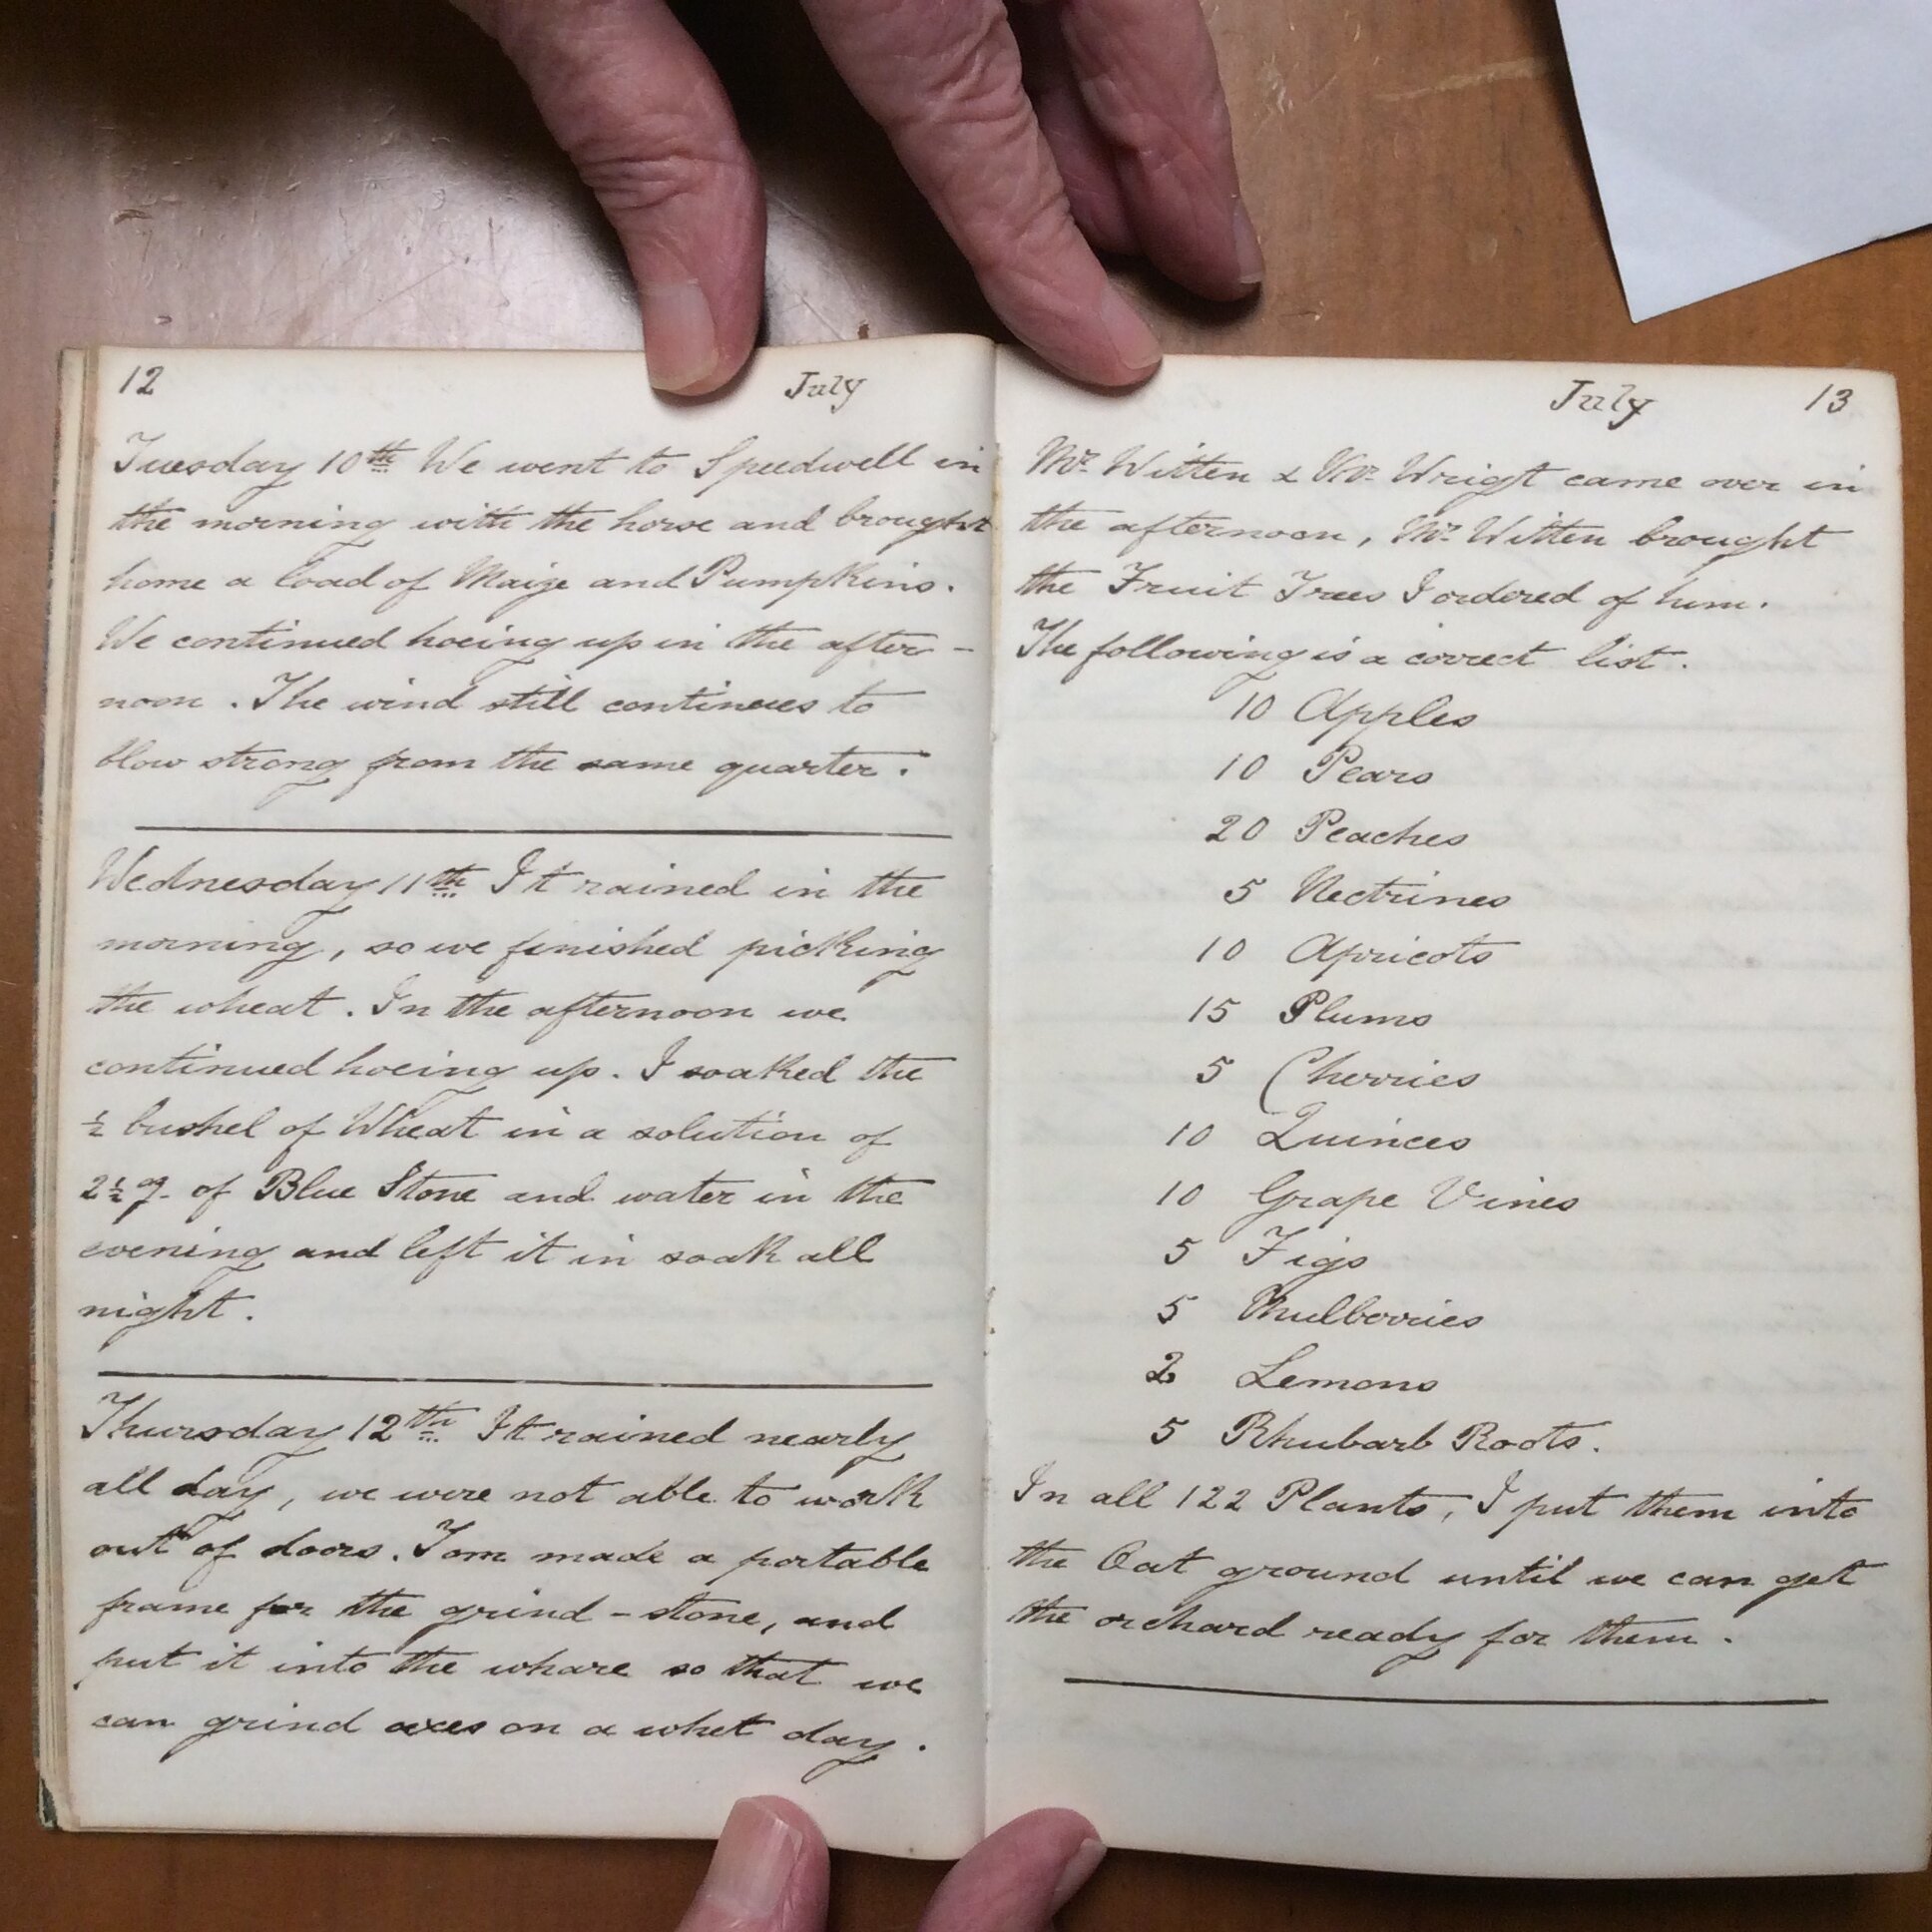 12 July
Tuesday 10th We went to Speedwell in
the morning with the horse and brought
home a load of Maize and Pumpkins.
We continued hoeing up in the after-
noon. The wind still continues to
blow strong from the same quarter.
Wednesday 11th It rained in the
morning, so we finished picking
the wheat. In the afternoon we
continued hoeing up. I soaked the
½ bushel of Wheat in a solution of
2½ oz. of Blue Stone and water in the
evening and left it in soak all
night.
Thursday 12th It rained nearly
all day, we were not able to work
out of doors. Tom made a portable
frame for the grind-stone, and
put it into the whare so that we
can grind axes on a whet day.
July 13
Mr. Witten & Mr. Wrigt came over in
the afternoon, Mr. Witten brought
the Fruit Trees I ordered of him.
The following is a correct list.
10 Apples
10 Pears
20 Peaches
5 Nectrines
10 Apricots
15 Plums
5 Cherries
10 Quinces
10 Grape Vines
5 Figs
5 Mulberries
2 Lemons
5 Rhubarb Roots.
In all 122 Plants, I put them into
the Oat ground until we can get
the orchard ready for them.